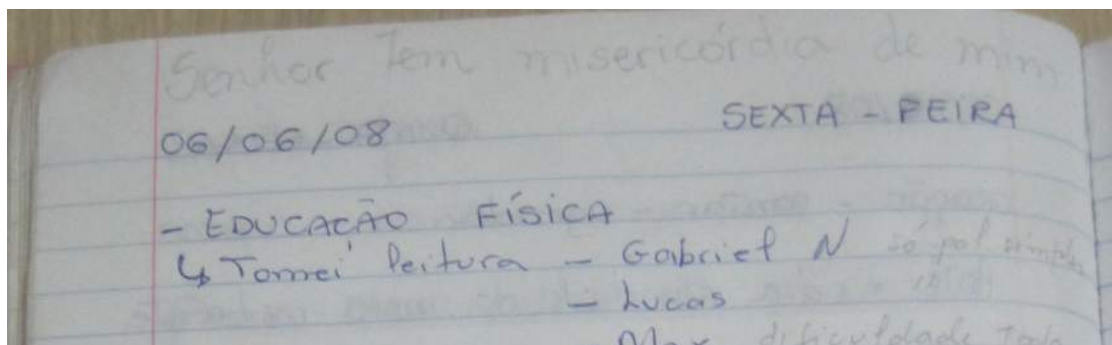 Senhor Tem misericórdia de mim
06/06/08 SEXTA - FEIRA
- EDUCAÇÃO FÍSICA
↳ Tomei leitura - Gabriel N só pal simples
- Lucas
dificuldade